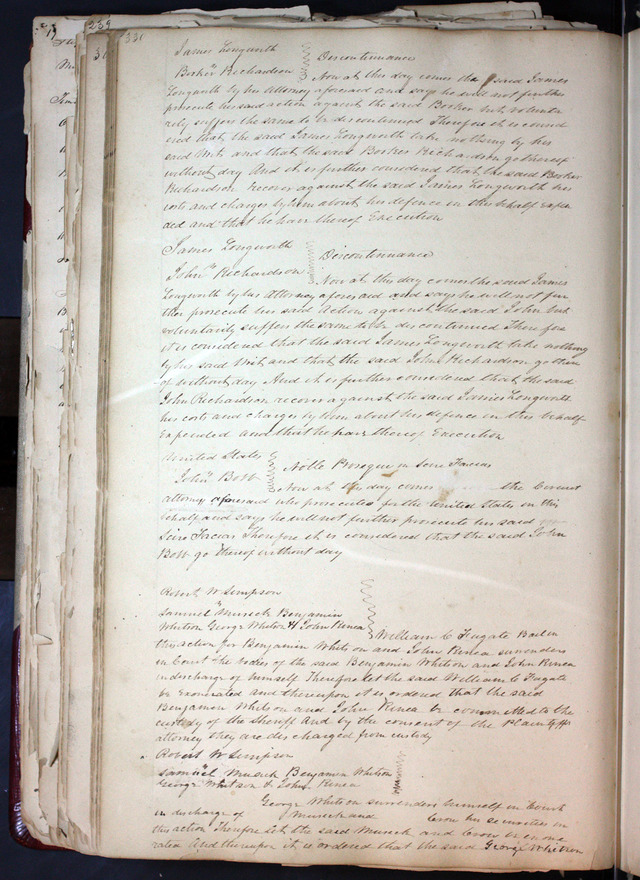 239
330
James Longworth
vs
Booker Richardson
Discontinuance
Now at this day comes the said James
Longworth by his attorney aforesaid and says he will not further
prosecute his said action against the said Booker but volunta
rily suffers the same to be discontinued Therefore it is consid
ered that the said James Longworth take nothing by his
said Writ and that the said Booker Richardson go thereof
without day And it is further considered that the said Booker
Richardson recover against the said James Longworth his
costs and charges by him about his defence in this behalf expen
ded and that he have thereof Execution
James Longworth
vs
John Richardson
Discontinuance
Now at this day comes the said James
Longworth by his Attorney aforesaid and says he will not fur
ther prosecute his said Action against the said John but
voluntarily suffers the same to be discontinued Therefore
it is considered that the said James Longworth take nothing
by his said Writ and that the said John Richardson go there
of without day And it is further considered that the said
John Richardson recover against the said James Longworth
his costs and charges by him about his defence in this behalf
Expended and that he have thereof Execution
United States
vs
John Bobb
Nolle Prosequi in Scire Facias
Now at this day comes the Circuit
attorney aforesaid who prosecutes for the United States in this
behalf and says he will not further prosecute his said
Scire Facias Therefore it is considered that the said John
Bobb go thereof without day
Robert W Simpson
vs
Samuel Musick Benjamin
Whitson George Whitson & John Rinea
William C Fugate Bail in
this action for Benjamin Whitson and John Rinea surrenders
in Court the bodies of the said Benjamin Whitson and John Rinea
in discharge of himself Therefore let the said William C Fugate
be Exonerated and thereupon it is ordered that the said
Benjamin Whitson and John Rinea be committed to the
custody of the Sheriff And by the consent of the Plaintiffs
attorney they are discharged from custody
Robert W Simpson
vs
Samuel Musick Benjamin Whitson
George Whitson & John Rinea
George Whitson surrenders himself in Court
in discharge of Musick and Crow his securities in
this action Therefore let the said Musick and Crow be exone
rated And thereupon it is ordered that the said George Whitson